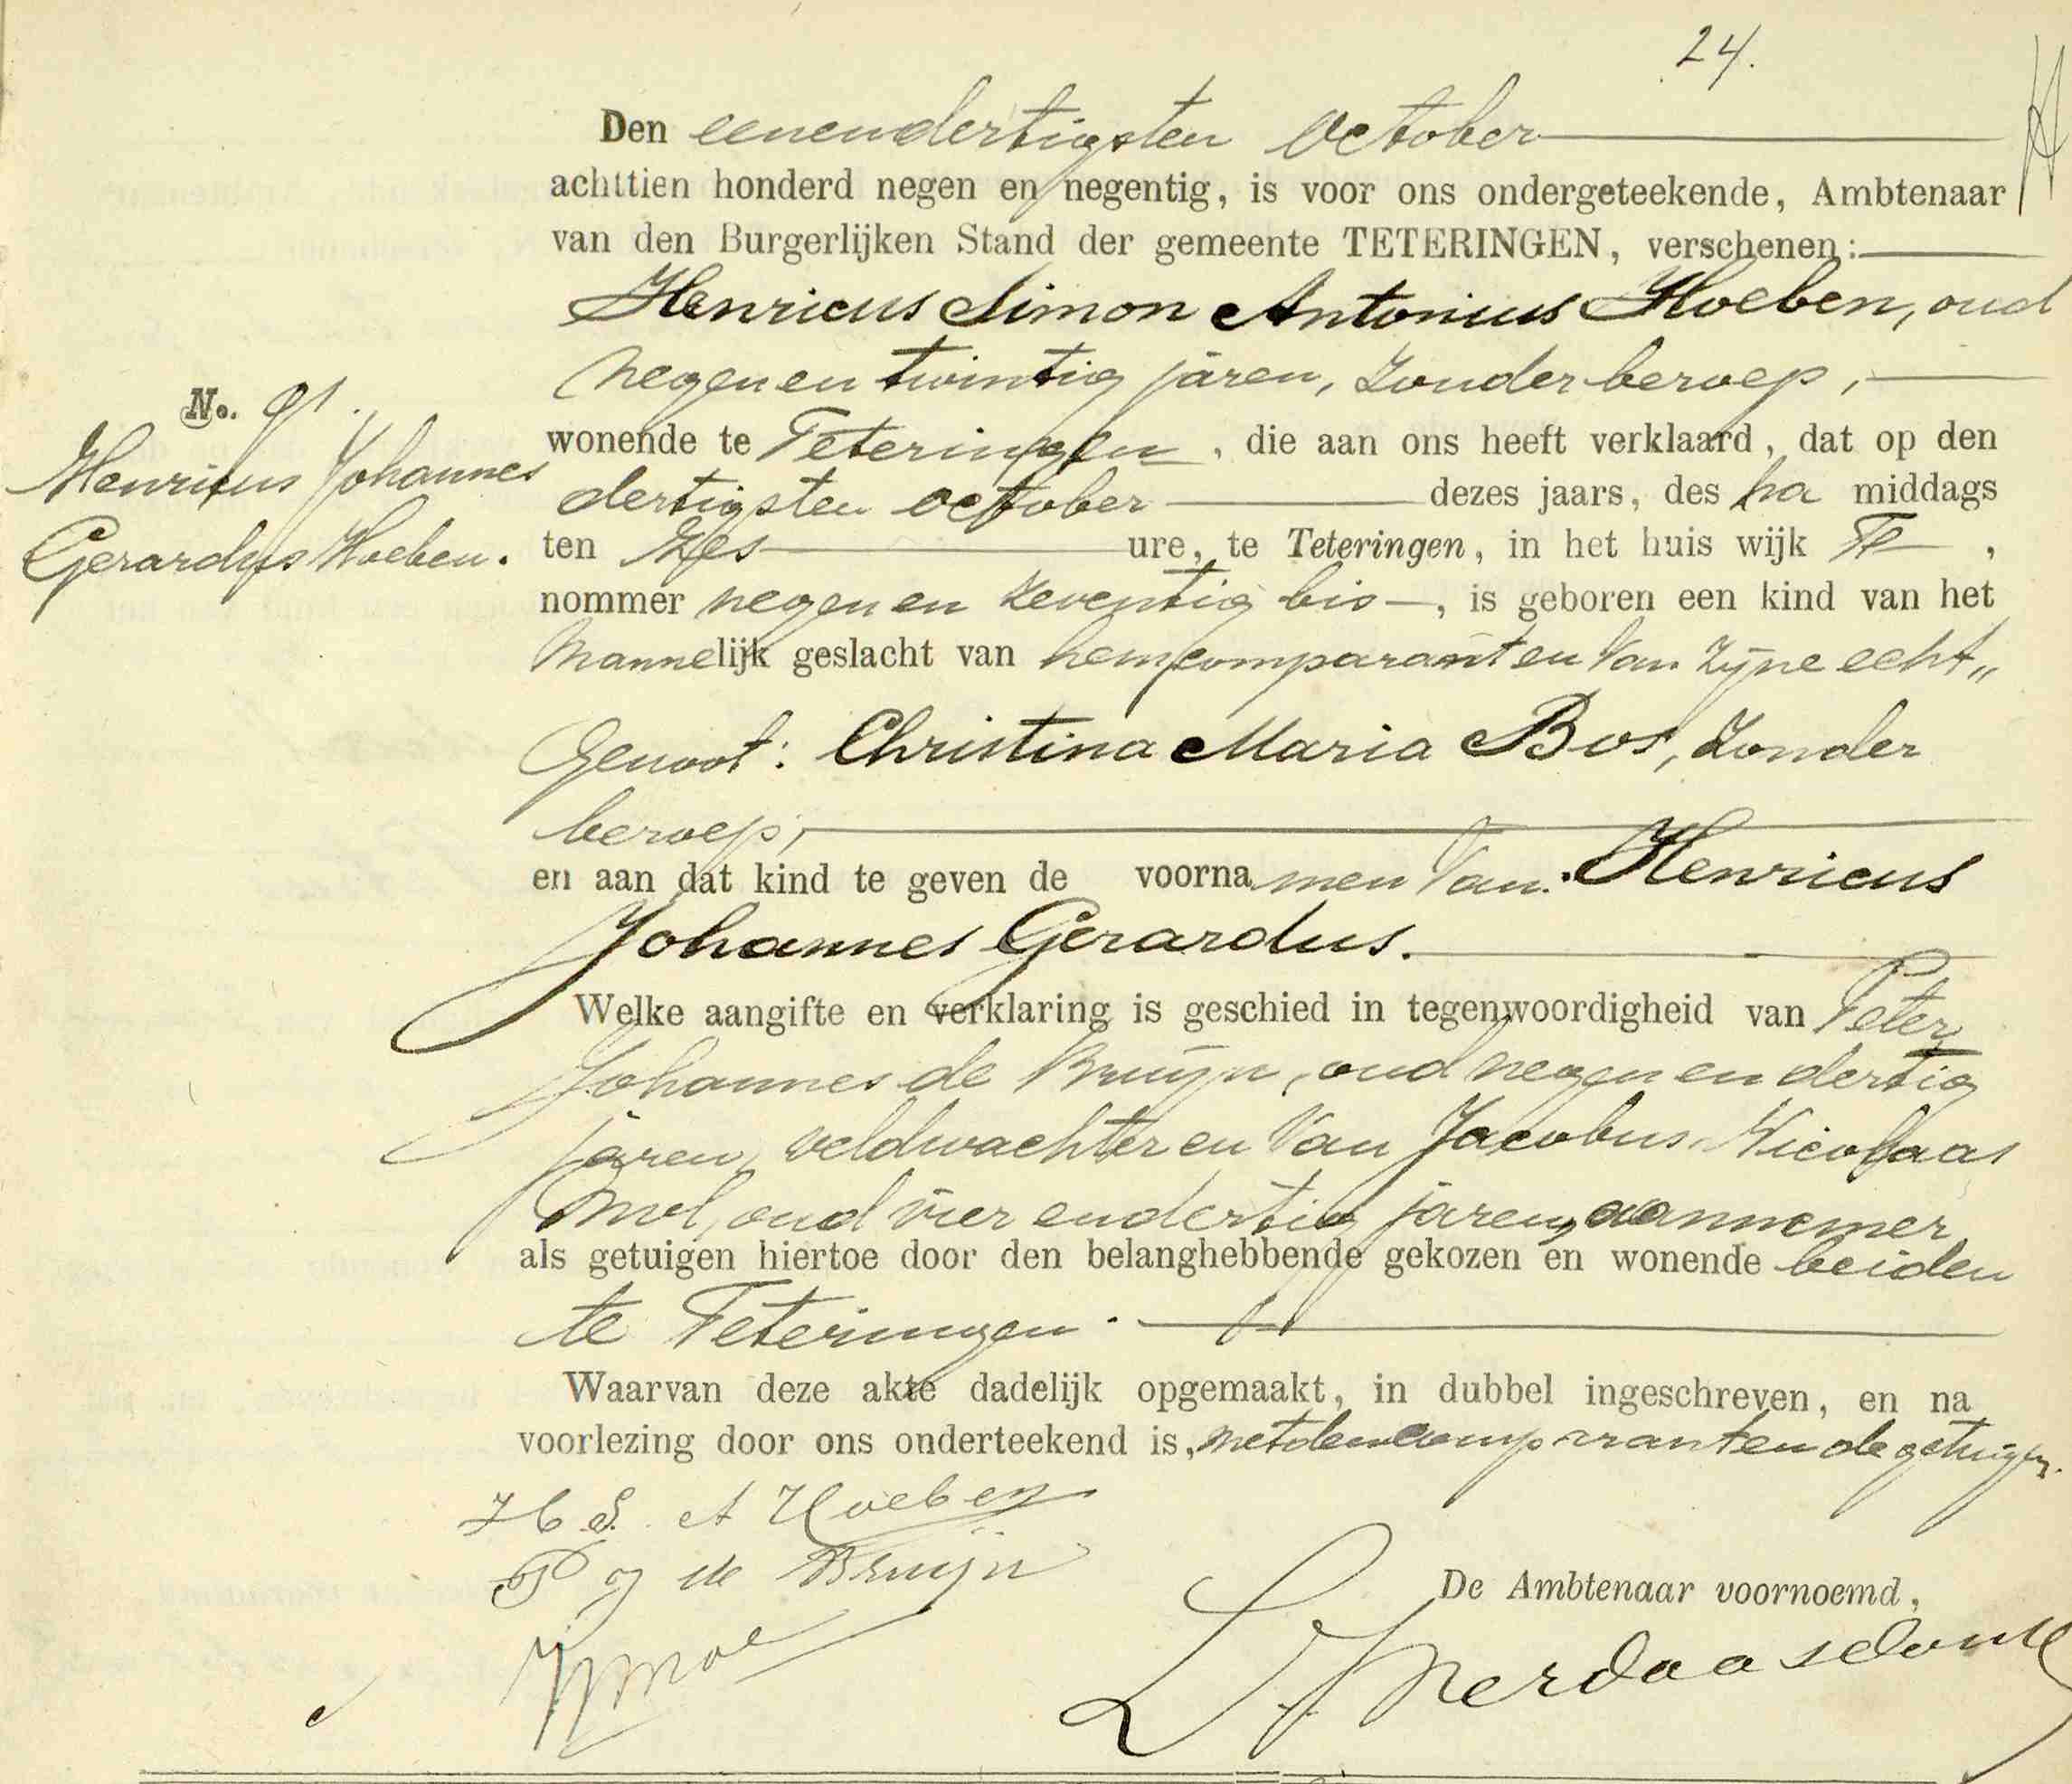 24.
Den eenendertigsten October
achttien honderd negen en negentig, is voor ons ondergeteekende, Ambtenaar
van den Burgerlijken Stand der gemeente TETERINGEN, verschenen:
Henricus Simon Antonius Hoeben, oud
negen en twintig jaren, zonder beroep,
No. 91.
Henricus Johannes
Gerardus Hoeben.
wonende te Teteringen, die aan ons heeft verklaard, dat op den
dertigsten october dezes jaars, des na middags
ten zes ure, te Teteringen, in het huis wijk ,
nommer negen en zeventig bis, is geboren een kind van het
Mannelijk geslacht van hem comparant en van zijne echt„
genoot: Christina Maria Bos, zonder
beroep,
en aan dat kind te geven de voornamen van: Henricus
Johannes Gerardus.
Welke aangifte en verklaring is geschied in tegenwoordigheid van Peter
Johannes de Bruijn, oud negen en dertig
jaren, veldwachter en van Jacobus Nicolaas
Mol, oud vier en dertig jaren, aannemer
als getuigen hiertoe door den belanghebbende gekozen en wonende beiden
te Teteringen.
Waarvan deze akte dadelijk opgemaakt, in dubbel ingeschreven, en na
voorlezing door ons onderteekend is, met den comparant en de getuigen.
H S. A Hoeben
P J de Bruijn
Mol
De Ambtenaar voornoemd,